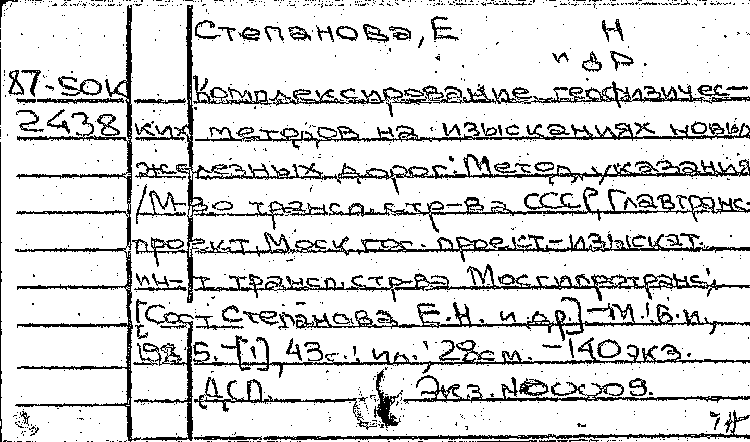 Степанова, Е Н
и др.
87-50К Комплексирование геофизичес-
2438 ких методов на изысканиях новых
железных дорог: Метод. указания
/М-во трансп. стр-ва СССР, Главтранс-
проект, Моск. гос. проект.-изыскат.
ин-т трансп. стр-ва Мосгипротранс;
[Сост. Степанова Е.Н. и др.] - М.: Б.и.,
1985. - [1], 43 с.: ил.; 28 см. - 140 экз.
ДСП. Экз. N00009.